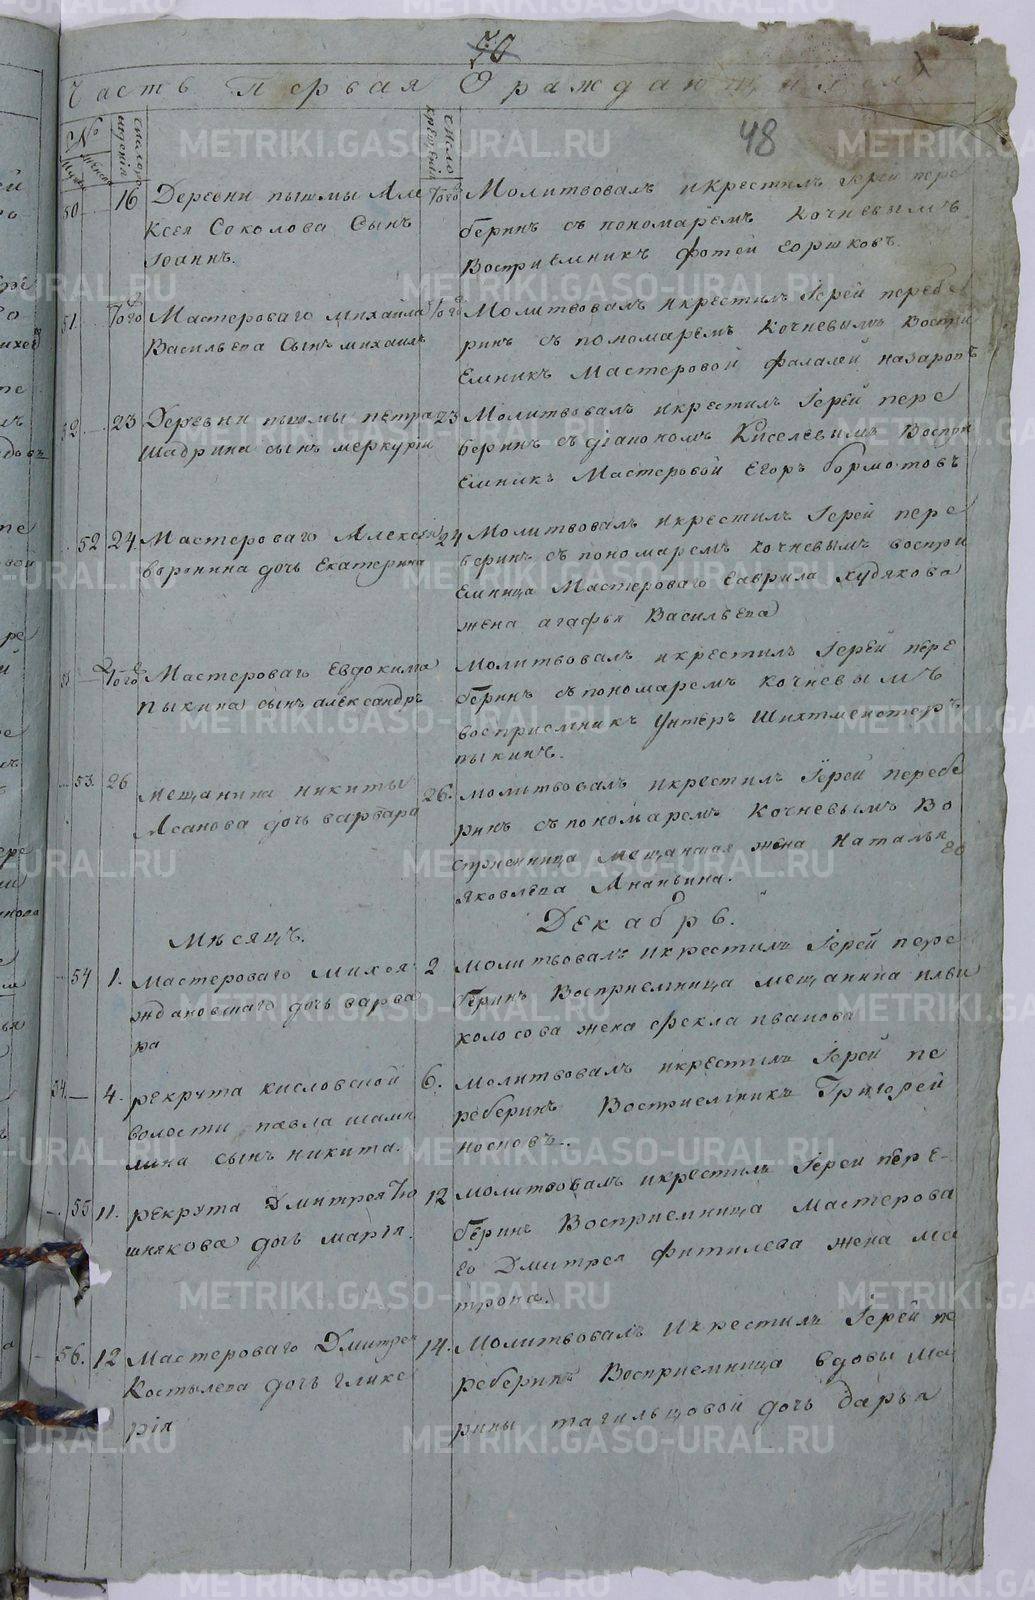 70
Часть Первая О раждающихся
48
№
мужеска
женска
число рождения
число крещенія
50 16 Деревни пышмы Але
ксея Соколова Сынъ
Іоаннъ.
того Молитвовалъ икрестилъ Іерей пере
беринъ съ пономаремъ Кочневымъ
Восприемникъ фотей горшковъ.
51 того Мастероваго михаила
Васильева Сынъ михаилъ
того Молитвовалъ икрестилъ Іерей перебе
ринъ съ пономаремъ Кочневымъ Воспри
емникъ Мастеровой фалалей назаровъ
52 23 Деревни пышмы петра
шадрина сынъ меркурій
23 Молитвовалъ икрестилъ Іерей пере
беринъ съ діакономъ Киселевымъ Воспри
емникъ Мастеровой Егоръ бормотовъ
52 24 Мастероваго Алексея
воронина дочь Екатерина
24 Молитвовалъ икрестилъ Іерей пере
беринъ съ пономаремъ Кочневымъ воспри
емница Мастероваго гаврила худякова
жена агафья Васильева
того Мастероваго Евдокима
пыкина сынъ александръ
Молитвовалъ икрестилъ Іерей пере
беринъ съ пономаремъ кочневымъ
восприемникъ Унтеръ Шихтмейстеръ
пыкинъ.
53. 26 Мещанина никиты
Асанова дочь варвара
26. Молитвовалъ икрестилъ Іерей перебе
ринъ съ пономаремъ Кочневымъ Во
сприемница мещанская жена Наталья
яковлева Ананьина.
Мѣсяцъ. Декабрь.
54 1. Мастероваго михея
ждановскаго дочь варва
ра
2 Молитвовалъ икрестилъ Іерей пере
беринъ Восприемница мещанина
колосова жена фекла иванова
54. 4. рекрута кисловской
волости павла шами
лина сынъ никита.
6. Молитвовалъ икрестилъ Іерей пе
реберинъ Восприемникъ Григорей
носковъ.
55 11. рекрута Дмитрея
шнякова дочь марія.
12 Молитвовалъ икрестилъ Іерей пере-
беринъ Восприемница Мастерова
го Дмитрея фитилева жена ма
трона.
56. 12 Мастероваго Дмитрея
Костылева дочь глике
рія
14. Молитвовалъ Икрестилъ Іерей пе
реберинъ Восприемница вдовы ма
рины тагильцовой дочь дарья
METRIKI.GASO-URAL.RU